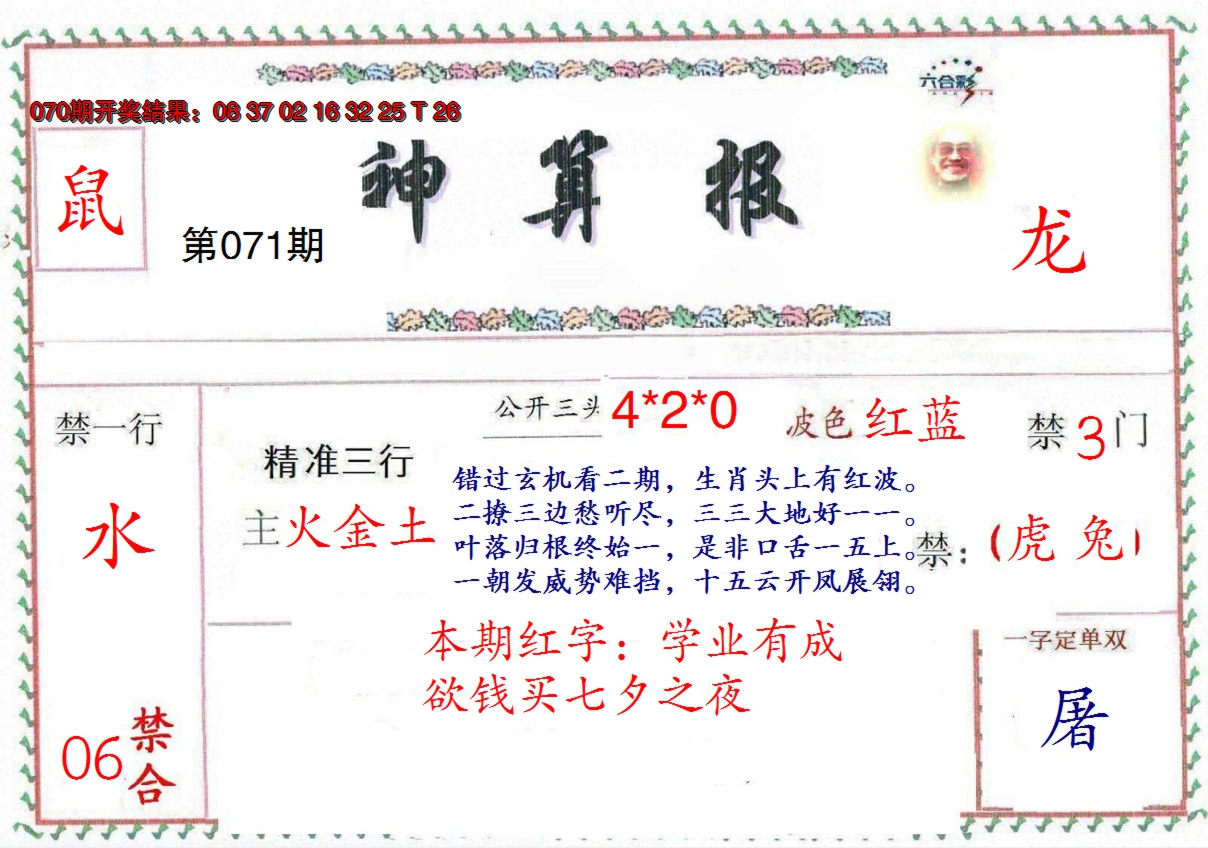 六合彩
070期开奖结果：08 37 02 16 32 25 T 26
鼠
神算报
第071期
龙
禁一行
水
06
禁合
公开三头 4*2*0
波色 红蓝
禁3门
精准三行
主火金土
错过玄机看二期，生肖头上有红波。
二撩三边愁听尽，三三大地好一一。
叶落归根终始一，是非口舌一五上。
一朝发威势难挡，十五云开凤展翎。
禁：（虎 兔）
本期红字：学业有成
欲钱买七夕之夜
一字定单双
屠